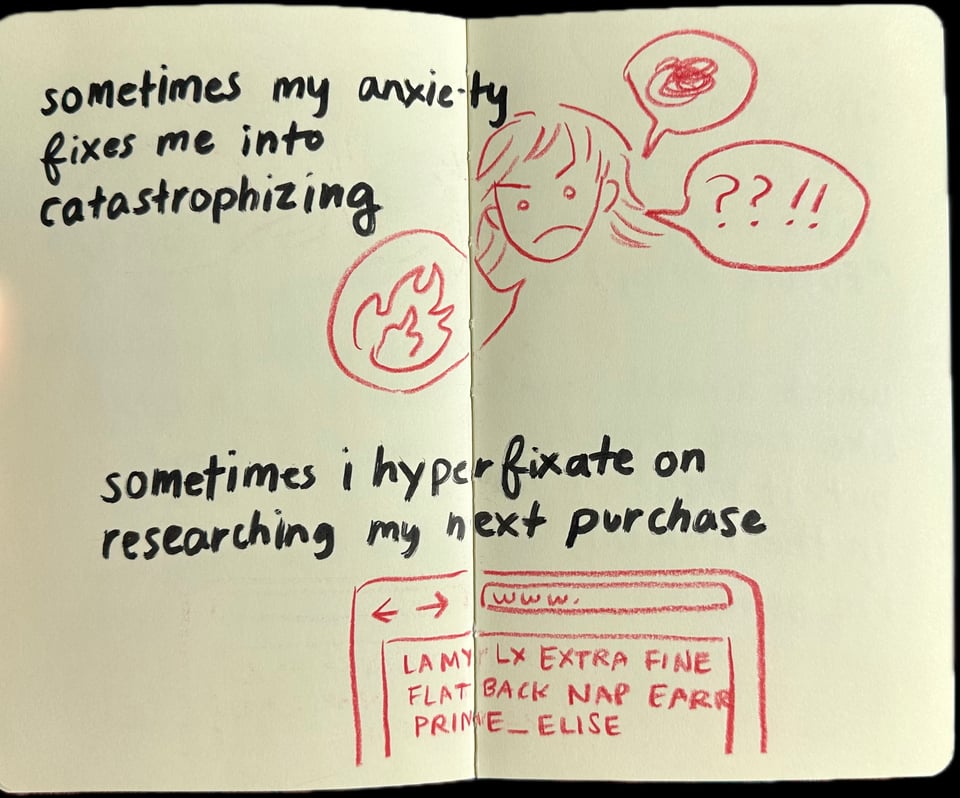 sometimes my anxiety
fixes me into
catastrophizing
??!!
sometimes i hyperfixate on
researching my next purchase
← → www.
LAMY LX EXTRA FINE
FLAT BACK NAP EARR
PRINCE_ELISE